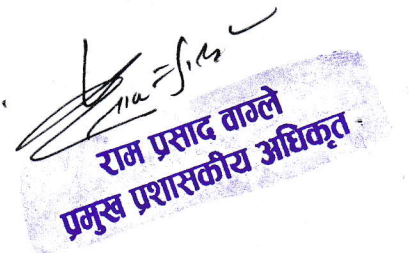 राम प्रसाद वाग्ले
प्रमुख प्रशासकीय अधिकृत